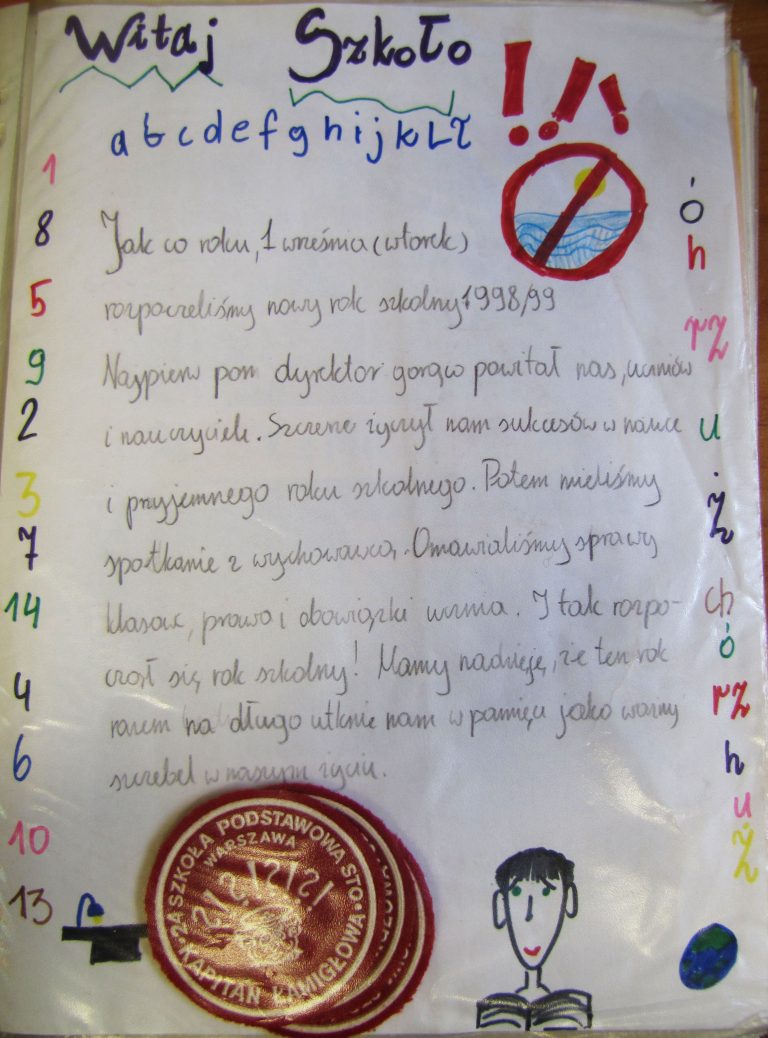 Witaj Szkoło !!!
a b c d e f g h i j k L ł
1
8
5
9
2
3
7
14
4
6
10
13
Jak co roku, 1 września (wtorek)
rozpoczeliśmy nowy rok szkolny 1998/99
Najpierw pan dyrektor gorąco powitał nas, uczniów
i nauczycieli. Szczerze życzył nam sukcesów w nauce
i przyjemnego roku szkolnego. Potem mieliśmy
spotkanie z wychowawcą. Omawialiśmy sprawy
klasowe, prawa i obowiązki ucznia. I tak rozpo-
czął się rok szkolny! Mamy nadzieję, że ten rok
razem na długo utknie nam w pamięci jako ważny
szczebel w naszym życiu.
ó
h
rz
u
ż
ch
ó
rz
h
u
ż
24 SZKOŁA PODSTAWOWA STO
WARSZAWA
KAPITAN ŁAMIGŁOWA